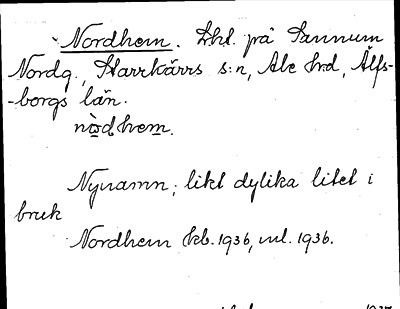 Nordhem. Lht. på Sannum
Nordg., Starrkärrs s:n, Ale hrd, Älfs-
-borgs län.
Nynamn; likt dylika litet i
bruk
Nordhem kb. 1936, ml. 1936.